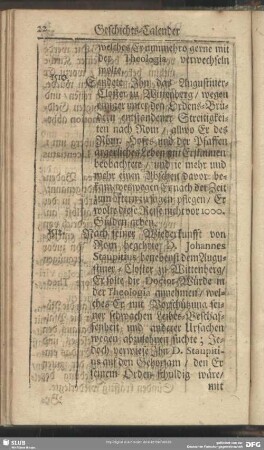 22 Geschichts-Calender
welches Er nunmehro gerne mit
der Theologia verwechseln
wolte.
1510. Sandte Ihn das Augustiner-
Closter zu Wittenberg / wegen
einiger unter den Ordens-Brü-
dern entstandener Streitigkei-
ten nach Rom / allwo Er des
Röm. Hofes und der Pfaffen
ärgerliches Leben mit Erstaunen
beobachtete / und je mehr und
mehr einen Abscheu davor be-
kam, weswegen Er nach der Zeit
zum öfftern zu sagen pflegen / Er
wolte diese Reise nicht vor 1000.
Gülden geben.
Nach seiner Wiederkunfft von
Rom begehrte D. Johannes
Staupitius benebenst dem Augu-
stiner-Closter zu Wittenberg /
Er solte die Doctor-Würde in
der Theologia annehmen / wel-
ches Er mit Vorschützung sei-
ner schwachen Leibes-Beschaf-
fenheit und anderer Ursachen
wegen abzulehnen suchte ; Je-
doch verwiese Ihn D. Staupiti-
us auf den Gehorsam / den Er
seinem Orden schuldig wäre /
mit
SLUB